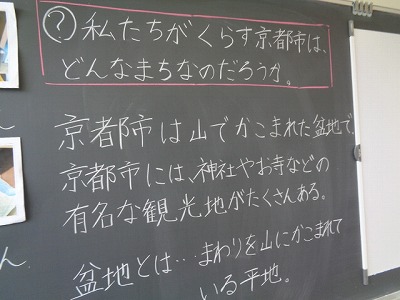 ？私たちがくらす京都市は、
どんなまちなのだろうか。
京都市は山でかこまれた盆地で、
京都市には、神社やお寺などの
有名な観光地がたくさんある。
盆地とは…まわりを山にかこまれて
いる平地。
ん
ん